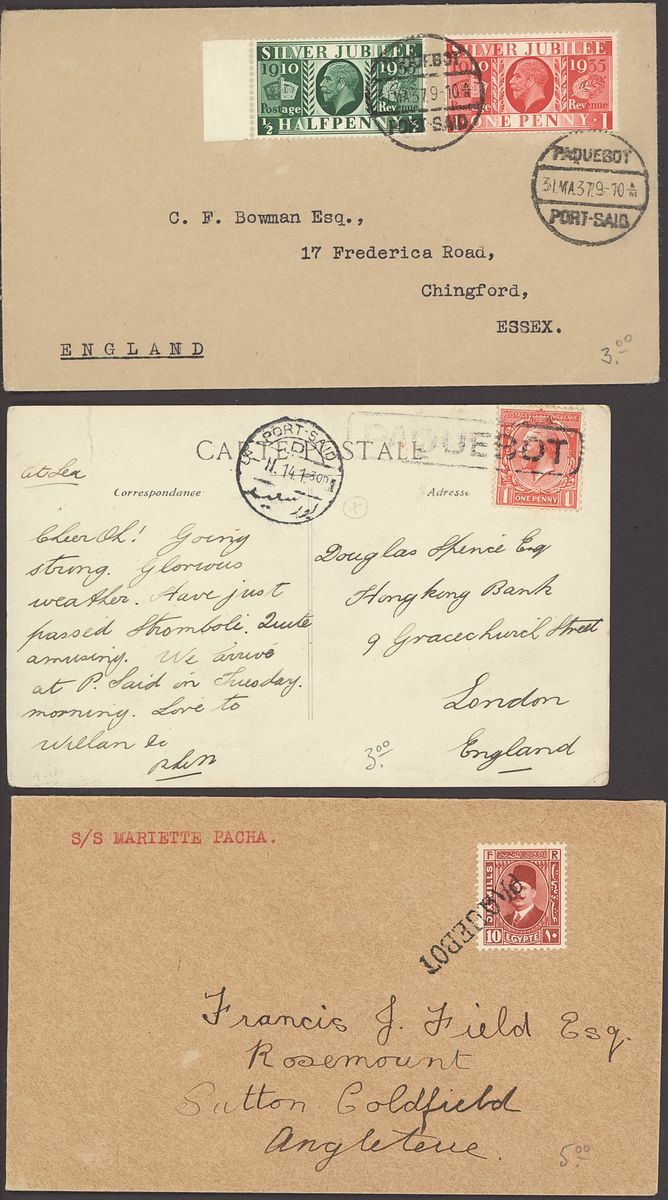 SILVER JUBILEE
1910 1935
Postage Revenue
½ HALFPENNY ½
SILVER JUBILEE
1910 1935
Postage Revenue
ONE PENNY 1
PAQUEBOT
31.MA.37.9-10 A
PORT-SAID
PAQUEBOT
31.MA.37.9-10 A
PORT-SAID
C. F. Bowman Esq.,
17 Frederica Road,
Chingford,
ESSEX.
ENGLAND
3.00
CARTE POSTALE
PORT-SAID
بور سعيد
PAQUEBOT
1 ONE PENNY 1
At Sea
Correspondance
Adresse
Cheer Oh! Going
strong. Glorious
weather. Have just
passed Stromboli. Quite
amusing. We arrive
at P. Said in Tuesday.
morning. Love to
Douglas Spence Esq
Hongkong Bank
9 Gracechurch Street
London
England
3.00
S/S MARIETTE PACHA.
F R
MILLS
10 EGYPTE ١٠
PAQUEBOT
Francis J. Field Esq.
Rosemount
Sutton Coldfield
Angleterre.
5.00